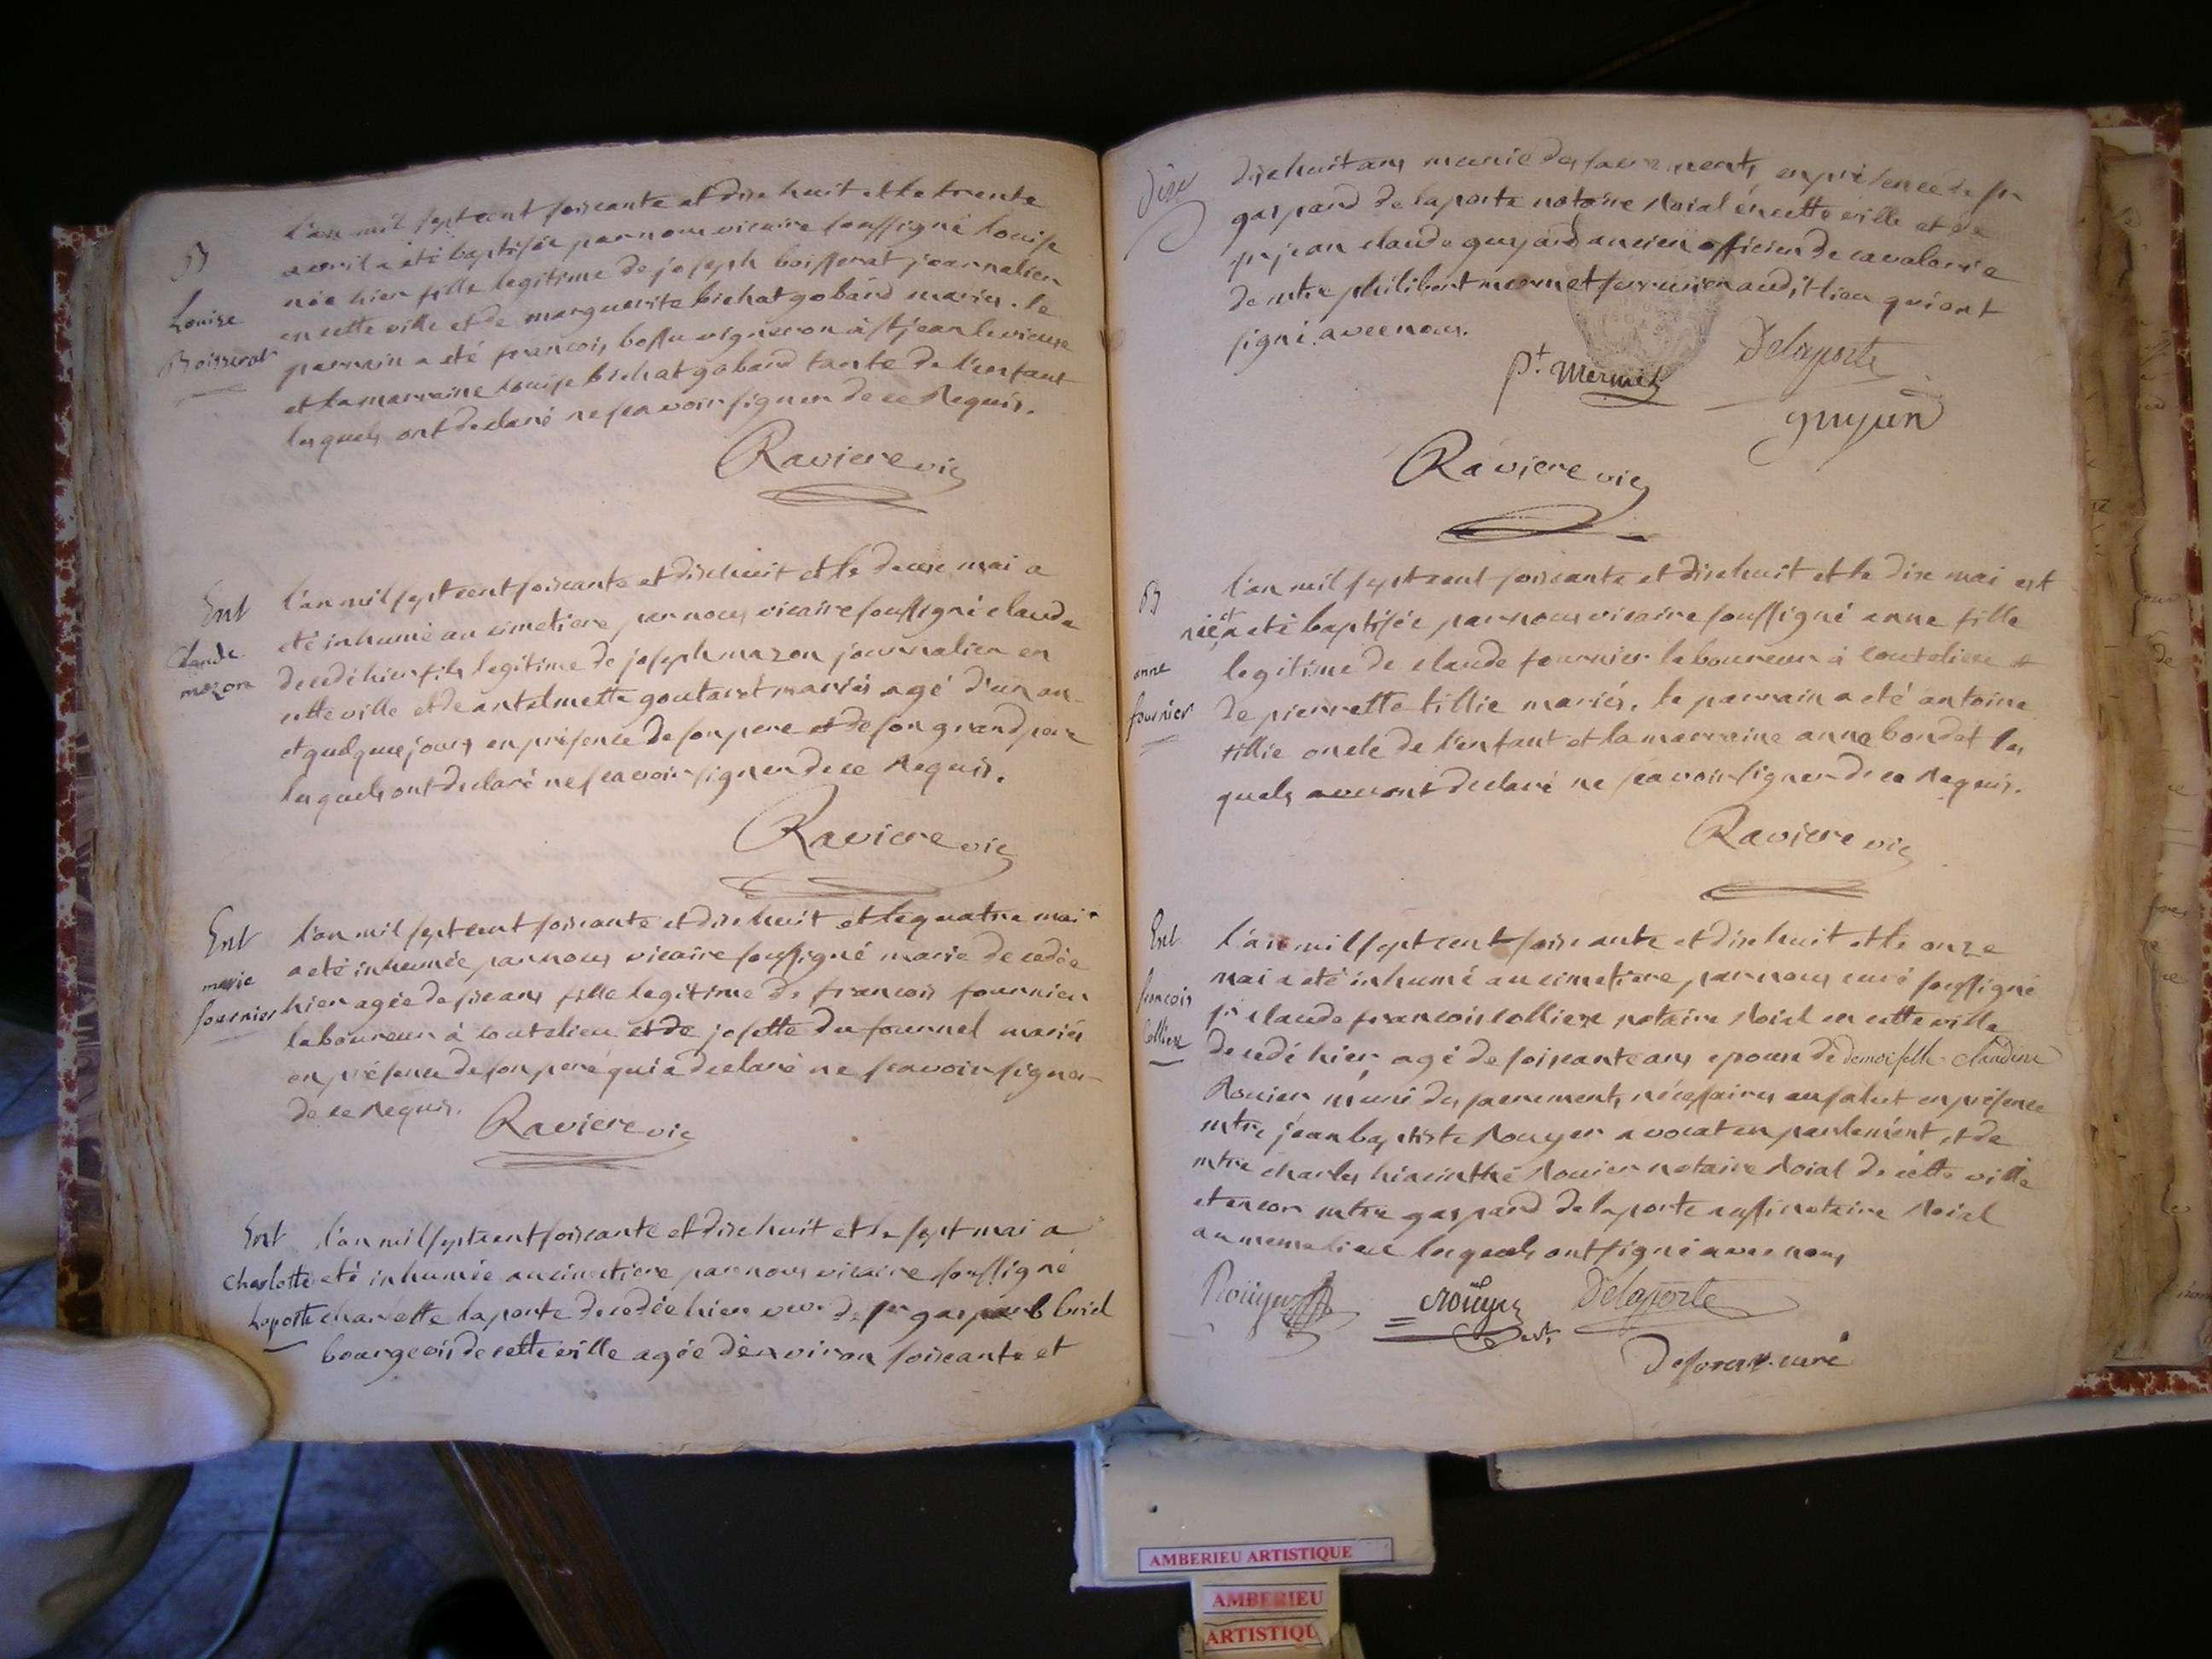 B
Louise
Boisserat
l'an mil sept cent soixante et dixe huit et le trente
avril a été baptisée par nous vicaire soussigné louise
née hier fille legitime de joseph boisserat journalier
en cette ville et de marguerite bichat gobard mariés. le
parrain a eté francois bossu vigneron à st jean le vieuxe
et la marreine louise bichat gobard tante de l'enfant
lesquels ont declaré ne scavoir signer de ce requis.
Raviere vic
Ent
Claude
mazon
l'an mil sept cent soixante et dixehuit et le deuxe mai a
eté inhumé au cimetiere par nous vicaire soussigné claude
decedé hier fils legitime de joseph mazon journalier en
cette ville et de antelmette goutaret mariés agé d'un an
et quelque jours en présence de son pere et de son grand pere
lesquels ont declaré ne scavoir signer de ce requis.
Raviere vic
Ent
marie
fournier
l'an mil sept cent soixante et dixe huit et le quatre mai
a eté inhumée par nous vicaire soussigné marie decedée
hier agée de sixe ans fille legitime de francois fournier
laboureur à coutelieu et de josette du fournel mariés
en présence de son pere qui a declaré ne scavoir signer
de ce requis.
Raviere vic
Ent
charlotte
laporte
l'an mil sept cent soixante et dixe huit et le sept mai a
eté inhumée au cimetiere par nous vicaire soussigné
charlotte laporte decedée hier veve de sr gaspard briel
bourgeois de cette ville agée d'environ soixante et
dixe
dixehuit ans munie des sacrements en présence de sr
gaspard de laporte notaire roial en cette ville et de
sr jean claude guyard ancien officier de cavalerie
de mtre philibert mermet serrurier audit lieu qui ont
signé avec nous.
pt. Mermet
Delaporte
guyard
Raviere vic
B
anne
fournier
l'an mil sept cent soixante et dixehuit et le dixe mai est
née et a eté baptisée par nous vicaire soussigné anne fille
legitime de claude fournier laboureur à coutelieu et
de pierrette tillie mariés. le parrain a eté antoine
tillie oncle de l'enfant et la marreine anne bondet les
quels ont declaré ne scavoir signer de ce requis.
Raviere vic
Ent
francois
colliexe
l'an mil sept cent soixante et dixe huit et le onze
mai a eté inhumé au cimetiere par nous curé soussigné
sr claude francois colliexe notaire roial en cette ville
decedé hier agé de soixante ans epoux de demoiselle claudine
Rouier muni des sacrements nécessaires au salut en présence
mtre jean baptiste Rouyer avocat en parlement, et de
mtre charles hiacinthe Rouier notaire roial de cette ville
et encor mtre gaspard de laporte aussi notaire roial
au meme lieu lesquels ont signé avec nous
Rouyer
Rouyer
Delaporte
curé
AMBERIEU ARTISTIQUE
AMBERIEU
ARTISTIQU